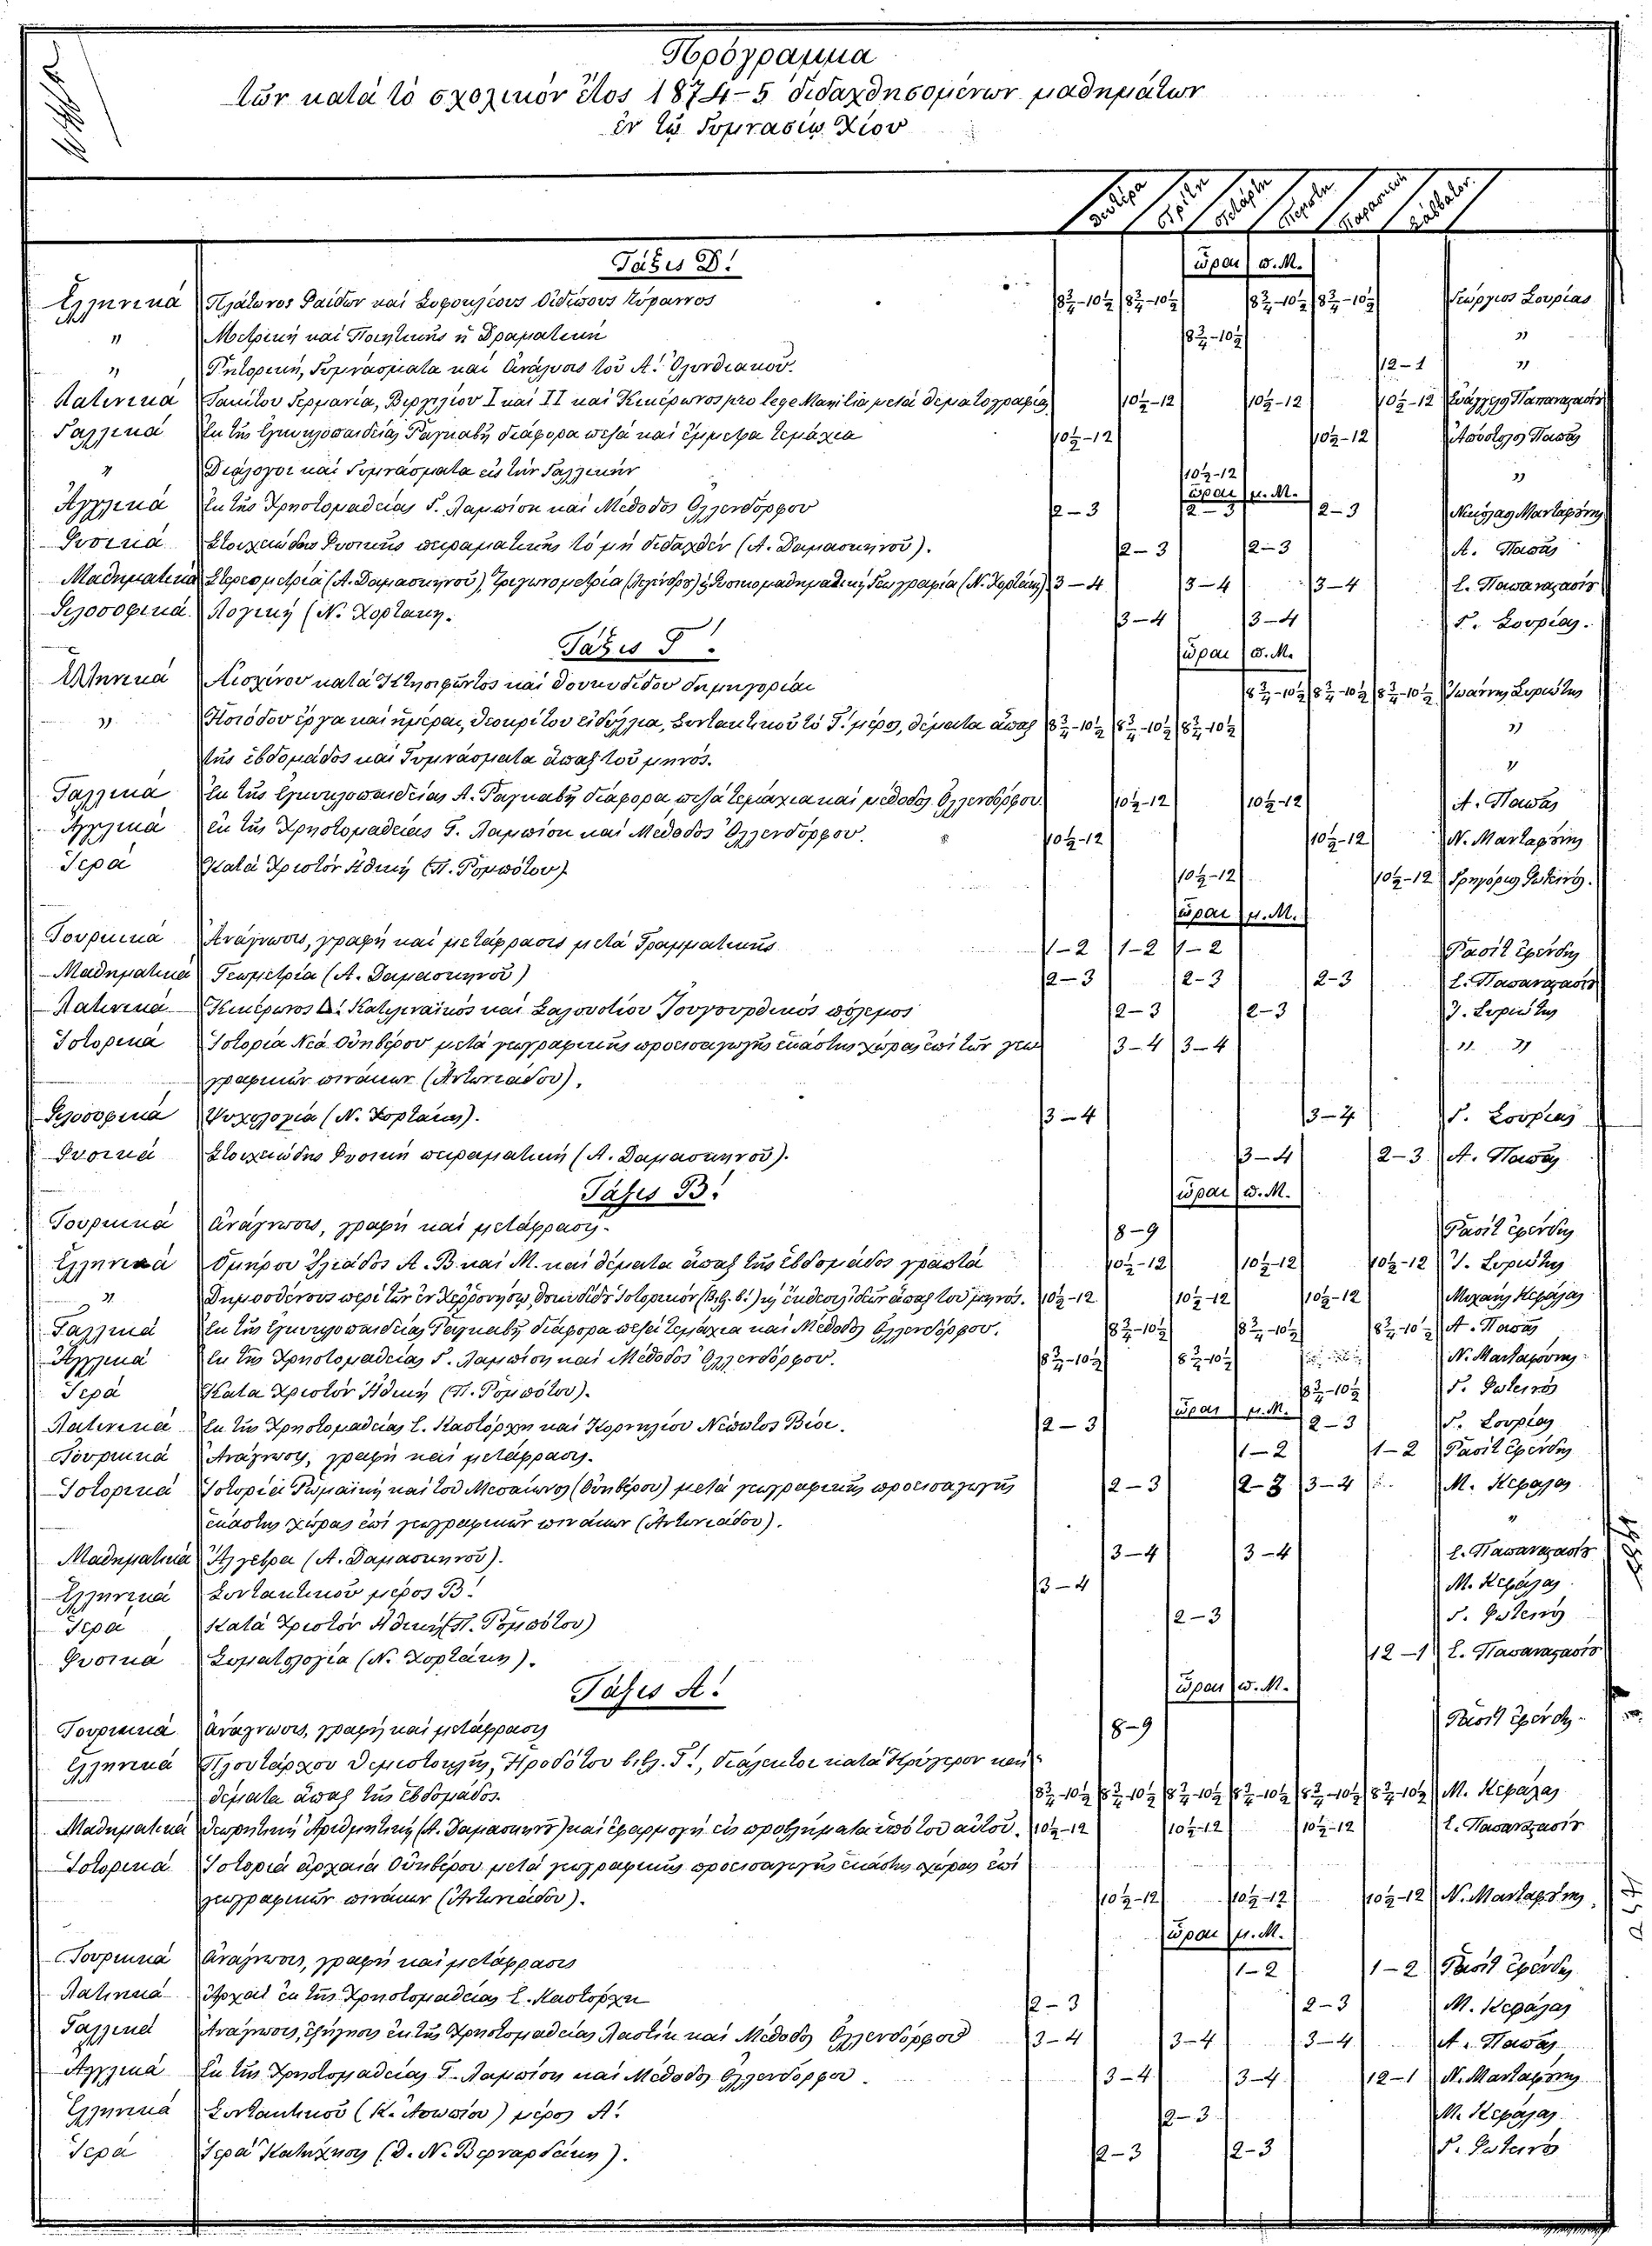 Πρόγραμμα
τῶν κατὰ τὸ σχολικὸν ἔτος 1874-5 διδαχθησομένων μαθημάτων
ἐν τῷ Γυμνασίῳ Χίου
Δευτέρα Τρίτη Τετάρτη Πέμπτη Παρασκευὴ Σάββατον
Τάξις Δ! ὧραι π.Μ.
Ἑλληνικὰ Πλάτωνος Φαίδων καὶ Σοφοκλέους Οἰδίπους τύραννος 8¾-10½ 8¾-10½ 8¾-10½ 8¾-10½ Γεώργιος Σουρίας
" Μετρικὴ καὶ Ποιητικῆς ἡ Δραματική 8¾-10½ "
" Ῥητορική, Γυμνάσματα καὶ ἀνάλυσις τοῦ Α! Ὀλυνθιακοῦ. 12-1 "
Λατινικὰ Τακίτου Γερμανία, Βιργιλίου I καὶ II καὶ Κικέρωνος pro lege Manilia μετὰ θεματογραφίας 10½-12 10½-12 10½-12
Γαλλικὰ Ἐκ τῆς ἐγκυκλοπαιδείας Ῥαγκαβῆ διάφορα πεζὰ καὶ ἔμμετρα τεμάχια 10½-12 10½-12 Ἀπόστολος Παπᾶς
" Διάλογοι καὶ Γυμνάσματα εἰς τὴν Γαλλικήν 10½-12 "
ὧραι μ.Μ.
Ἀγγλικὰ Ἐκ τῆς Χρηστομαθείας Γ. Λαμπίση καὶ Μέθοδος Ὀλλενδόρφου 2-3 2-3 2-3
Φυσικὰ Στοιχειώδους Φυσικῆς πειραματικῆς τὸ μὴ διδαχθέν (Α. Δαμασκηνοῦ). 2-3 2-3 Α. Παπᾶς
Μαθηματικὰ Στερεομετρία (Α. Δαμασκηνοῦ), Τριγωνομετρία ἢ Φυσικομαθηματικὴ Γεωγραφία (Ν. Χορτάκη) 3-4 3-4 3-4
Φιλοσοφικὰ Λογική (Ν. Χορτάκη. 3-4 3-4 Γ. Σουρίας.
Τάξις Γ! ὧραι π.Μ.
Ἑλληνικὰ Αἰσχίνου κατὰ Κτησιφῶντος καὶ Θουκυδίδου δημηγορίαι 8¾-10½ 8¾-10½ 8¾-10½
" Ἡσιόδου ἔργα καὶ ἡμέραι, Θεοκρίτου εἰδύλλια, Συντακτικοῦ τὸ Γ! μέρος, θέματα ἅπαξ 8¾-10½ 8¾-10½ 8¾-10½ "
τῆς ἑβδομάδος καὶ Γυμνάσματα ἅπαξ τοῦ μηνός. "
Γαλλικὰ Ἐκ τῆς ἐγκυκλοπαιδείας Α. Ῥαγκαβῆ διάφορα πεζὰ τεμάχια καὶ μέθοδος Ὀλλενδόρφου 10½-12 10½-12 Α. Παπᾶς
Ἀγγλικὰ ἐκ τῆς Χρηστομαθείας Γ. Λαμπίση καὶ Μέθοδος Ὀλλενδόρφου. 10½-12 10½-12
Ἱερὰ Κατὰ Χριστὸν Ἠθική (Π. Ῥομπότου) 10½-12 10½-12
ὧραι μ.Μ.
Τουρκικὰ Ἀνάγνωσις, γραφὴ καὶ μετάφρασις μετὰ Γραμματικῆς 1-2 1-2 1-2
Μαθηματικὰ Γεωμετρία (Α. Δαμασκηνοῦ) 2-3 2-3 2-3
Λατινικὰ Κικέρωνος Δ! Κατιλιναϊκὸς καὶ Σαλουστίου Ἰουγουρθικὸς πόλεμος 2-3 2-3
Ἱστορικὰ Ἱστορία Νέα Οὐηβέρου μετὰ γεωγραφικῆς προεισαγωγῆς ἑκάστης χώρας ἐπὶ τῶν γεω 3-4 3-4 " "
γραφικῶν πινάκων (Ἀντωνιάδου).
Φιλοσοφικὰ Ψυχολογία (Ν. Χορτάκη). 3-4 3-4 Γ. Σουρίας
Φυσικὰ Στοιχειώδης Φυσικὴ πειραματική (Α. Δαμασκηνοῦ). 3-4 2-3 Α. Παπᾶς
Τάξις Β! ὧραι π.Μ.
Τουρκικὰ Ἀνάγνωσις, γραφὴ καὶ μετάφρασις. 8-9
Ἑλληνικὰ Ὁμήρου Ἰλιάδος Α. Β. καὶ Μ. καὶ θέματα ἅπαξ τῆς ἑβδομάδος γραπτὰ 10½-12 10½-12 10½-12
" Δημοσθένους περὶ τῶν ἐν Χερρονήσῳ, ἅπαξ τοῦ μηνός. 10½-12 10½-12 10½-12
Γαλλικὰ Ἐκ τῆς ἐγκυκλοπαιδείας Ῥαγκαβῆ διάφορα πεζὰ τεμάχια καὶ Μέθοδος Ὀλλενδόρφου. 8¾-10½ 8¾-10½ 8¾-10½ Α. Παπᾶς
Ἀγγλικὰ Ἐκ τῆς Χρηστομαθείας Γ. Λαμπίση καὶ Μέθοδος Ὀλλενδόρφου. 8¾-10½ 8¾-10½
Ἱερὰ Κατὰ Χριστὸν Ἠθική (Π. Ῥομπότου). 8¾-10½
ὧραι μ.Μ.
Λατινικὰ Ἐκ τῆς Χρηστομαθείας Ε. Καστόρχη καὶ Κορνηλίου Νέπωτος Βίοι. 2-3 2-3 Γ. Σουρίας
Τουρκικὰ Ἀνάγνωσις, γραφὴ καὶ μετάφρασις. 1-2 1-2
Ἱστορικὰ Ἱστορία Ῥωμαϊκὴ καὶ τοῦ Μεσαίωνος (Οὐηβέρου) μετὰ γεωγραφικῆς προεισαγωγῆς 2-3 2-3 3-4
ἑκάστης χώρας ἐπὶ γεωγραφικῶν πινάκων (Ἀντωνιάδου). "
Μαθηματικὰ Ἄλγεβρα (Α. Δαμασκηνοῦ). 3-4 3-4
Ἑλληνικὰ Συντακτικοῦ μέρος Β! 3-4
Ἱερὰ Κατὰ Χριστὸν Ἠθική (Π. Ῥομπότου) 2-3
Φυσικὰ Σωματολογία (Ν. Χορτάκη). 12-1
Τάξις Α! ὧραι π.Μ.
Τουρκικὰ Ἀνάγνωσις, γραφὴ καὶ μετάφρασις 8-9
Ἑλληνικὰ Πλουτάρχου Θεμιστοκλῆς, Ἡροδότου βιβλ. Γ!, διάλεκτοι κατὰ Κρύγερον καὶ
θέματα ἅπαξ τῆς ἑβδομάδος. 8¾-10½ 8¾-10½ 8¾-10½ 8¾-10½ 8¾-10½ 8¾-10½
Μαθηματικὰ Θεωρητικὴ Ἀριθμητική (Α. Δαμασκηνοῦ) καὶ ἐφαρμογὴ εἰς προβλήματα ὑπὸ τοῦ αὐτοῦ. 10½-12 10½-12 10½-12
Ἱστορικὰ Ἱστορία ἀρχαία Οὐηβέρου μετὰ γεωγραφικῆς προεισαγωγῆς ἑκάστης χώρας ἐπὶ
γεωγραφικῶν πινάκων (Ἀντωνιάδου). 10½-12 10½-12 10½-12
ὧραι μ.Μ.
Τουρκικὰ Ἀνάγνωσις, γραφὴ καὶ μετάφρασις 1-2 1-2
Λατινικὰ Ἀρχαὶ ἐκ τῆς Χρηστομαθείας Ε. Καστόρχη 2-3 2-3
Γαλλικὰ Ἀνάγνωσις, ἐξήγησις ἐκ τῆς Χρηστομαθείας καὶ Μέθοδος Ὀλλενδόρφου 3-4 3-4 3-4 Α. Παπᾶς
Ἀγγλικὰ Ἐκ τῆς Χρηστομαθείας Γ. Λαμπίση καὶ Μέθοδος Ὀλλενδόρφου. 3-4 3-4 12-1
Ἑλληνικὰ Συντακτικοῦ (Κ. Ἀσωπίου) μέρος Α! 2-3
Ἱερὰ Ἱερὰ Κατήχησις (Δ. Ν. Βερναρδάκη). 2-3 2-3